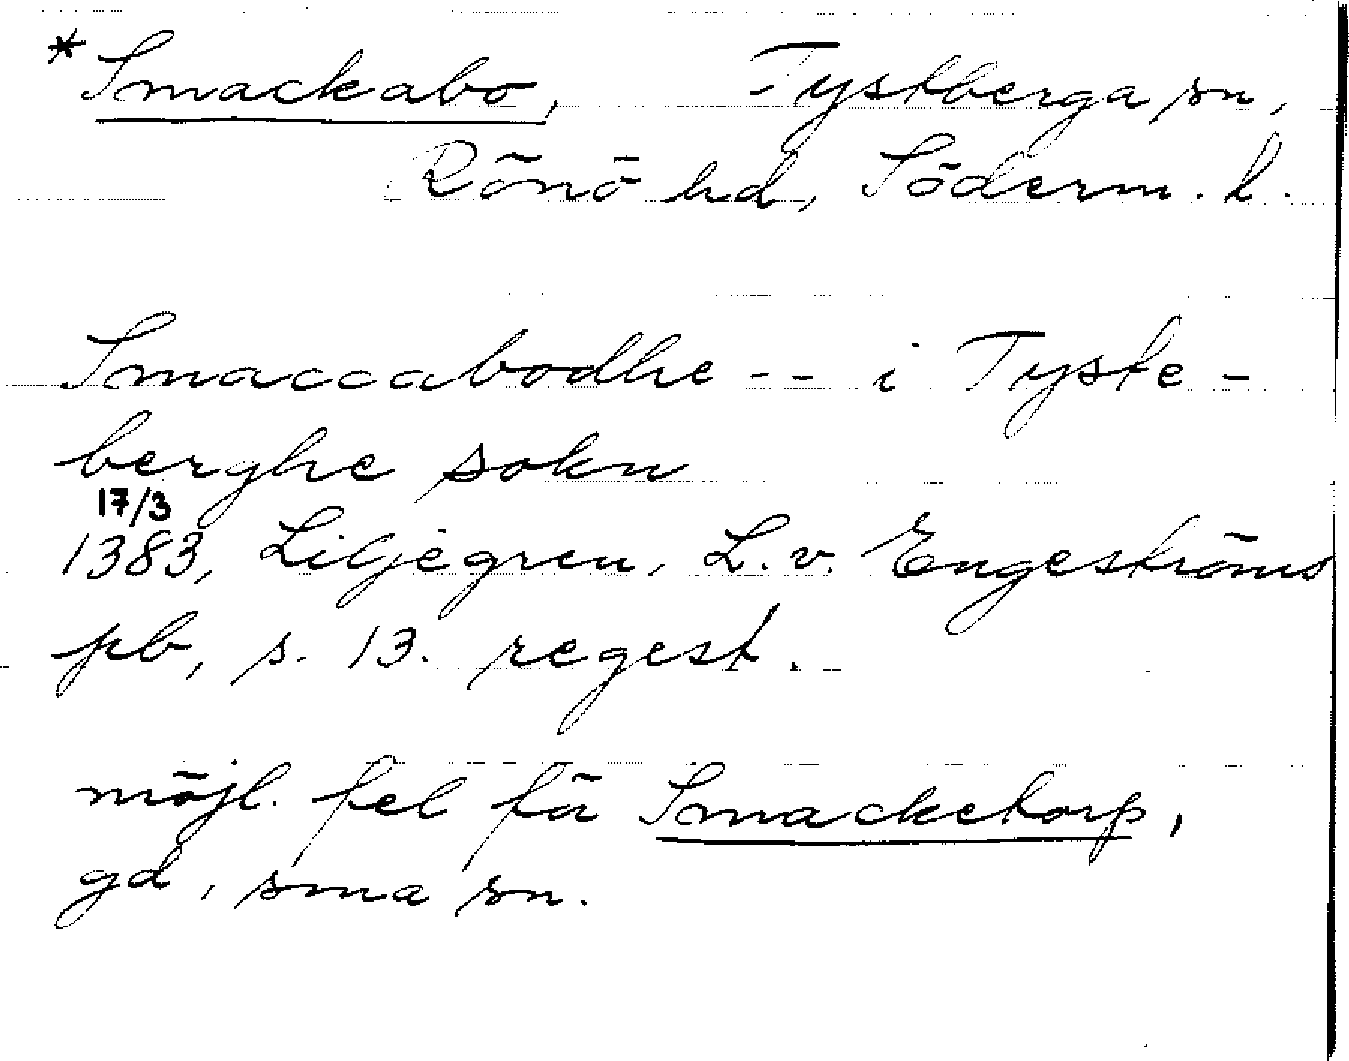 *Smackabo, Tystberga sn,
Rönö hd, Söderm. l.
Smaccabodhe -- i Tyste-
berghe sokn
17/3
1383, Liljegren, L. v. Engeströms
pb, s. 13. regest.
möjl. fel för Smacketorp,
gd, sma sn.